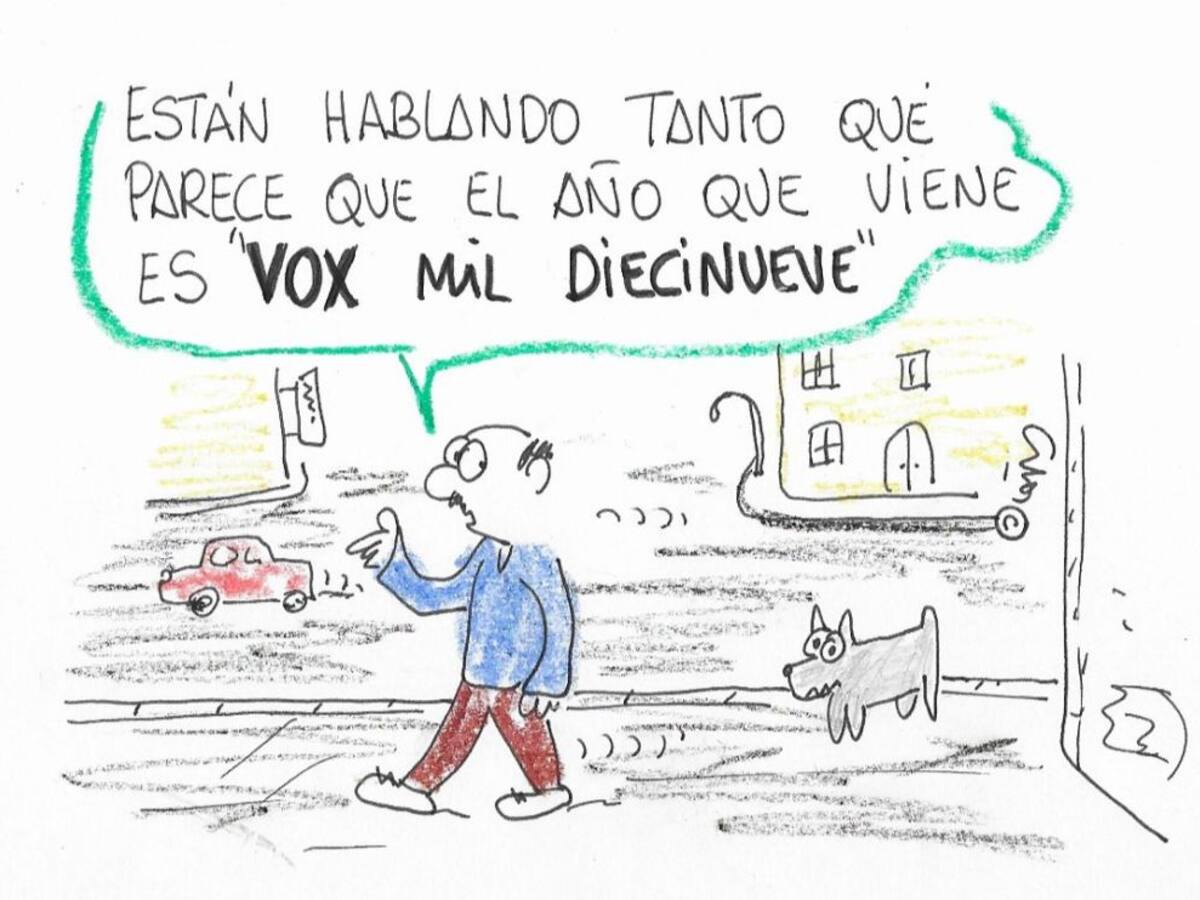 ESTÁN HABLANDO TANTO QUE
PARECE QUE EL AÑO QUE VIENE
ES "VOX MIL DIECINUEVE"